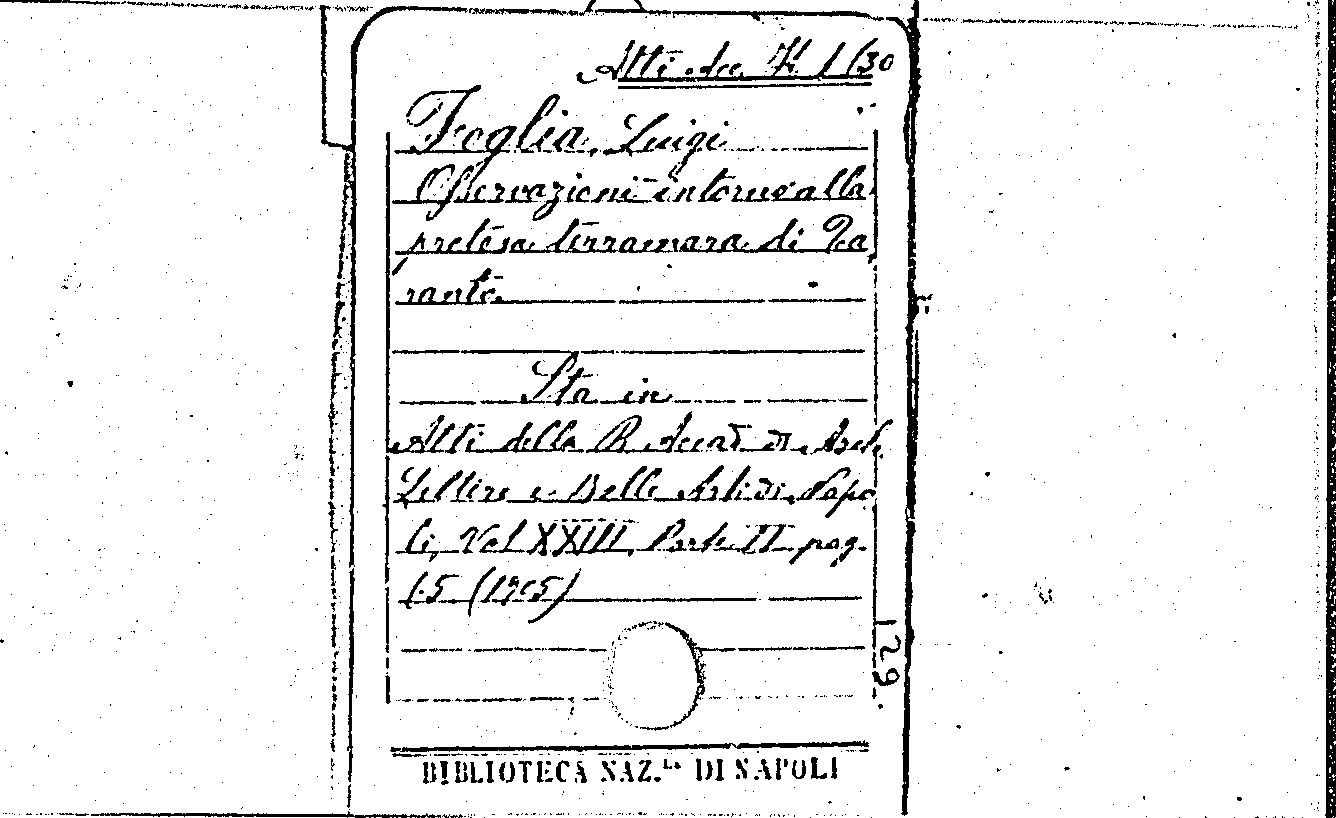 Atti Acc. H 1/30
Foglia, Luigi
Osservazioni intorno alla
pretesa terramara di Ta
ranto.
Sta in
Atti della R. Accad. di Arch.
Lettere e Belle Arti di Napo
li, Vol XXIII, Parte II pag.
1.5 (1905)
129.
BIBLIOTECA NAZ.LE DI NAPOLI